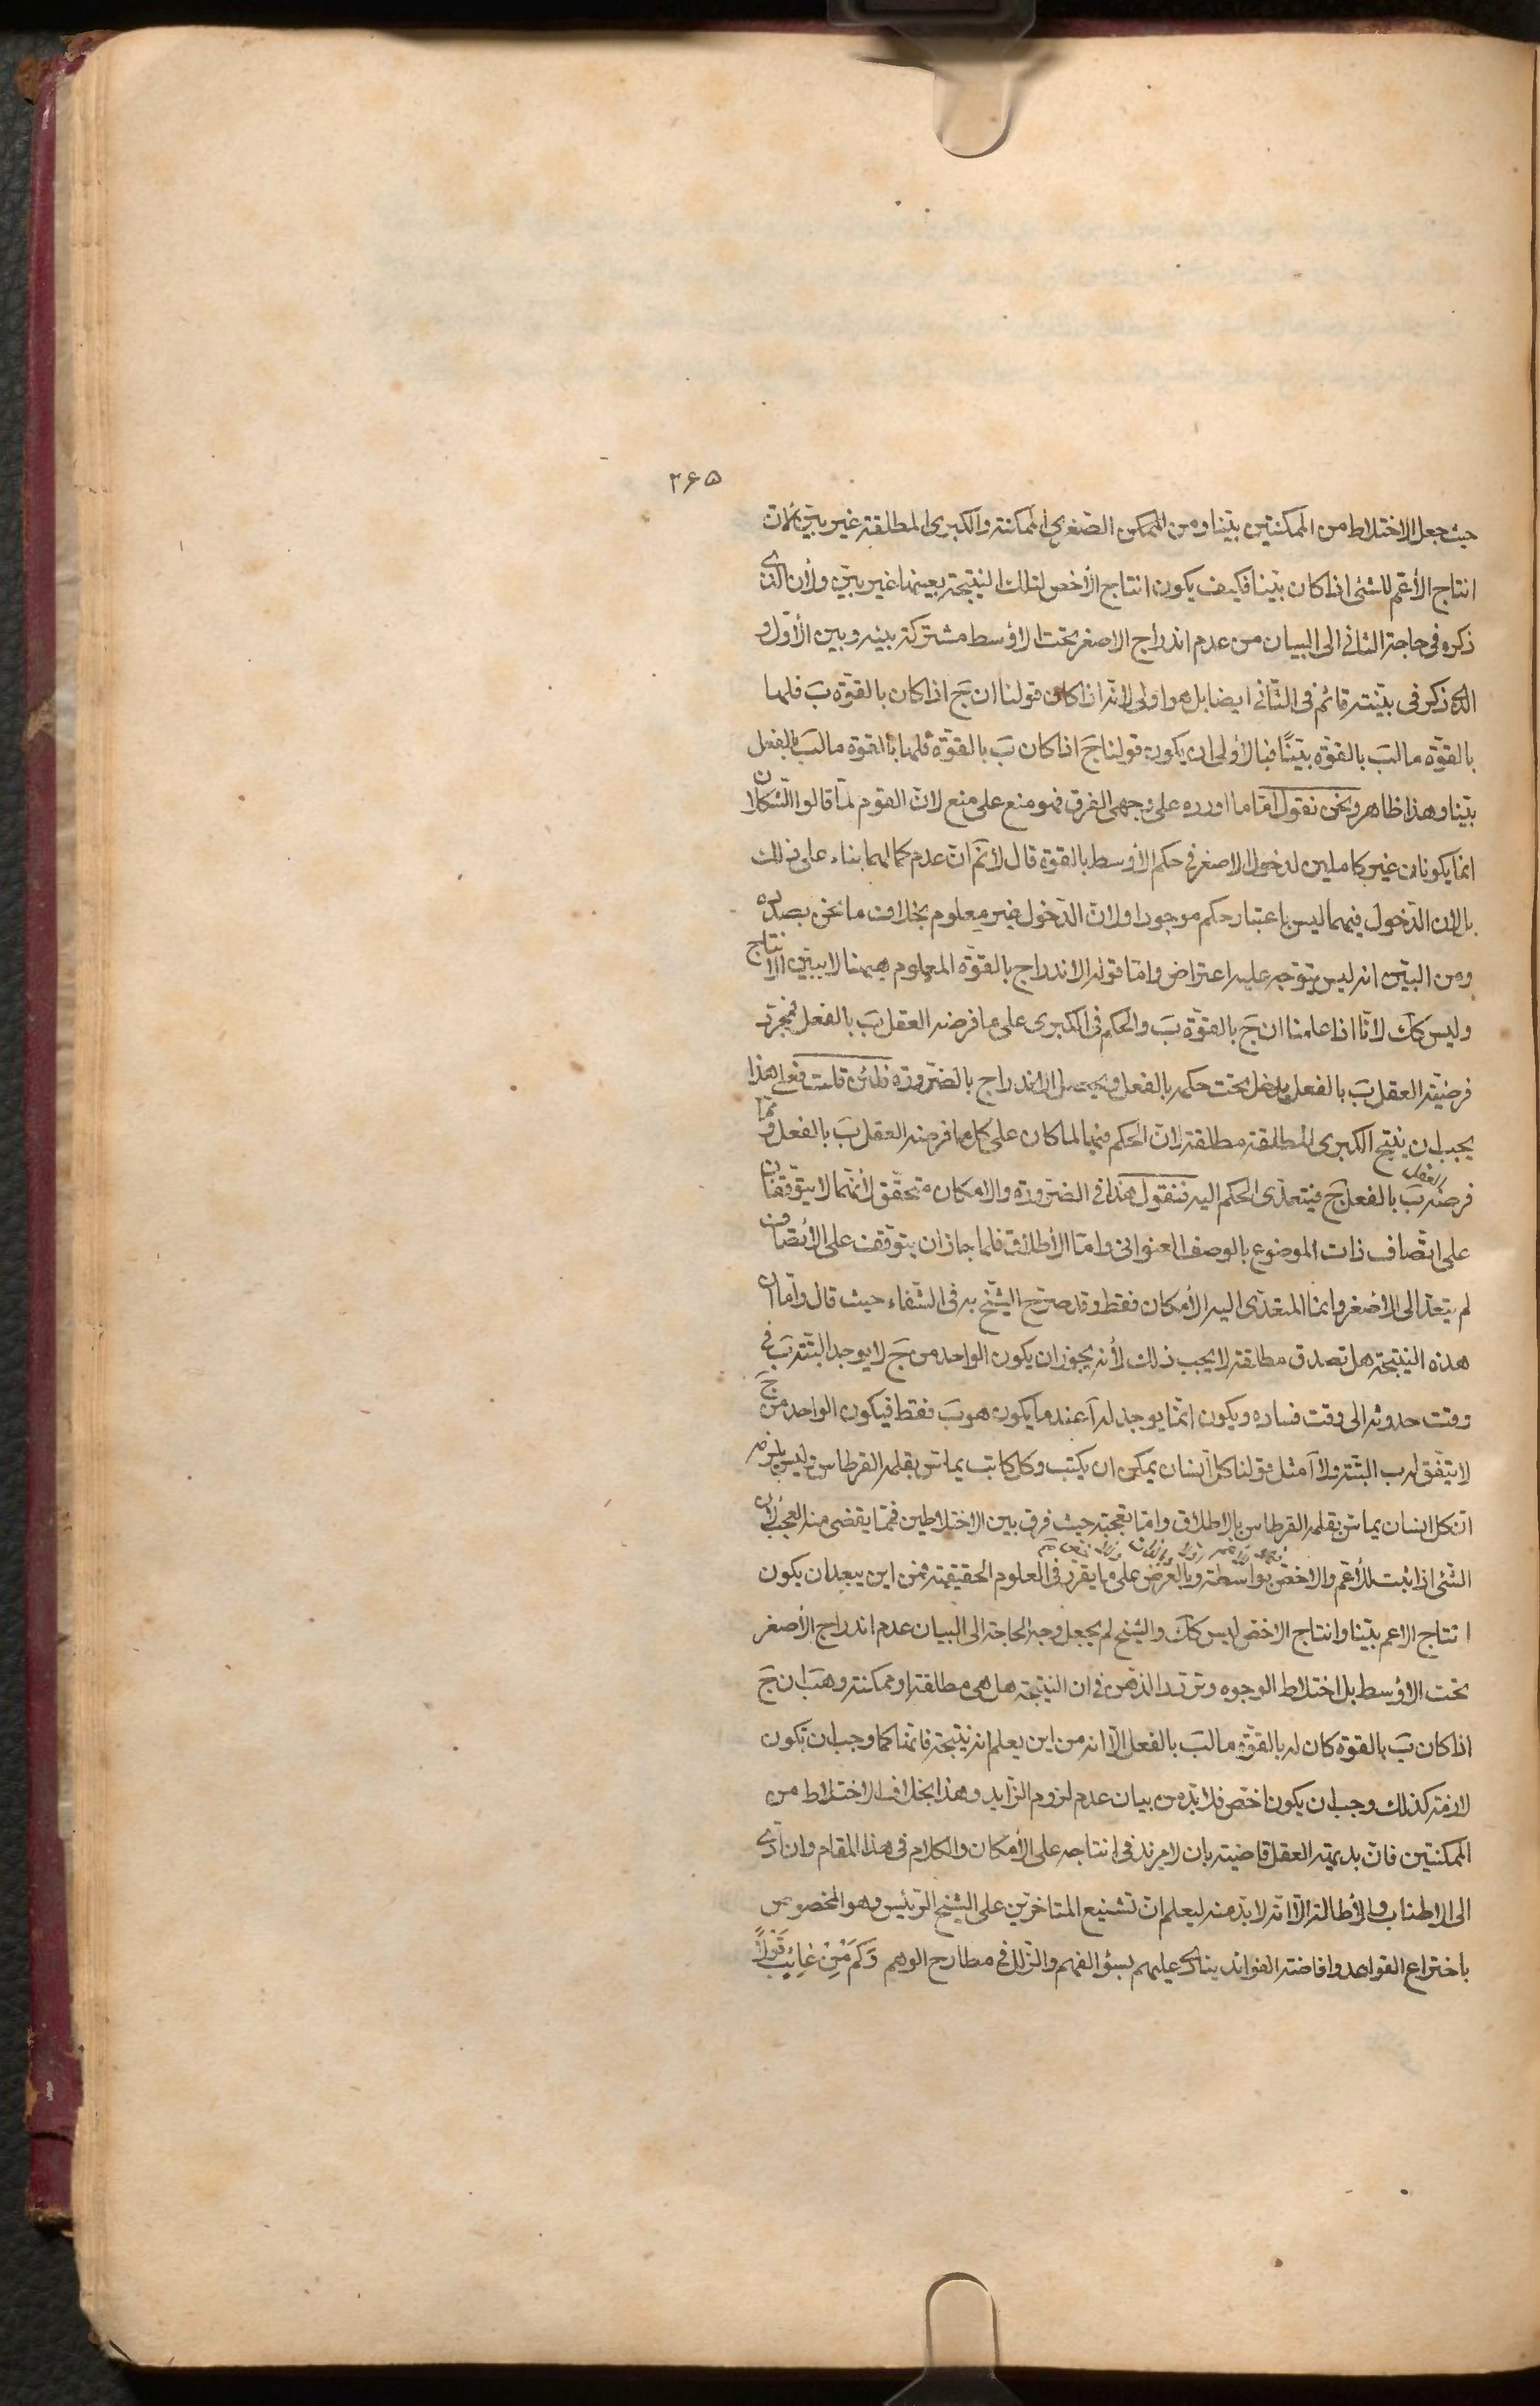 ۲۶۵
حيث جعل الاختلاط من الممكنتين بيّنا ومن الممكن الصغرى الممكنة والكبرى المطلقة غير بيّن لانّ
انتاج الأعمّ للشئ اذا كان بيّنا فكيف يكون انتاج الأخص لتلك النتيجة بعينها غير بيّن ولأن الذى
ذكره فى حاجة الثانى الى البيان من عدم اندراج الاصغر تحت الاوسط مشتركة بينه وبين الأوّل و
الذى ذكر فى بيّنته قائم فى الثّانى ايضا بل هو اولى لانّه اذا كان قولنا ان جَ اذا كان بالقوّة بَ فلها
بالقوّة مالبَ بالقوّة بيّنًا فبالأولى ان يكون قولنا جَ اذا كان بَ بالقوّة فلها بالقوة مالبَ بالفعل
بيّنا وهذا ظاهر ونحن نقول امّا ما اورده على وجهى الفرق فهو منع على منع لانّ القوم لمّا قالوا الشكلان
انما يكونان غير كاملين لدخول الاصغر فى حكم الأوسط بالقوة قال لانّم انّ عدم كمالهما بناء على ذلك
بل لان الدّخول فيهما ليس باعتبار حكم موجود او لان الدّخول غير معلوم بخلاف ما نحن بصدده
ومن البيّن انه ليس يتوّجه عليه اعتراض وامّا قوله الاندراج بالقوّة المعلوم ههنا لا يبيّن الانتاج
وليس كك لانّا اذا علمنا ان جَ بالقوّة بَ والحكم فى الكبرى على ما فرضه العقل بَ بالفعل فبمجرّد
فرضيّة العقل بَ بالفعل يدخل تحت حكمه بالفعل ويحصل الاندراج بالضّرورة فلئن قلت فعلى هذا
يجب ان ينتج الكبرى المطلقة مطلقة لانّ الحكم فيها لما كان على كل ما فرضه العقل بَ بالفعل وممّا
فرضه العقل بَ بالفعل جَ فيتعدّى الحكم اليه فنقول هذا فى الضّرورة والامكان متحقّق لأنّهما لا يتوقفان
على اتّصاف ذات الموضوع بالوصف العنوانى وامّا الأطلاق فلما جاز ان يتوقف على الأتّصاف
لم يتعدّ الى الاصغر وانما المتعدّى اليه الأمكان فقط وقد صرّح الشّيخ به فى الشّفاء حيث قال وامّا ان
هذه النتيجة هل تصدق مطلقة لا يجب ذلك لأنه يجوز ان يكون الواحد من جَ لا يوجد البتّة بَ فى
وقت حدوثه الى وقت فساده ويكون انّما يوجد له آ عند ما يكون هو بَ فقط فيكون الواحد من جَ
لا يتّفق له ب البتّة ولا آ مثل قولنا كل انسان يمكن ان يكتب وكل كاتب يماسّ بقلمه القرطاس وليس يلزم
ان كل انسان يماسّ بقلمه القرطاس بالاطلاق وامّا تعجّبه حيث فرق بين الاختلاطين فممّا يقضى منه العجب لأن
الشّئ اذا يثبت للأعمّ والاخصّ بواسطته وبالعرض على ما يقرّر فى العلوم الحقيقيّة فمن اين يبعد ان يكون
انتاج الاعم بيّنا وانتاج الاخصّ ليس كك والشّيخ لم يجعل وجه الحاجة الى البيان عدم اندراج الأصغر
تحت الاوسط بل اختلاط الوجوه وتردّد الذّهن فى ان النتيجة هل هى مطلقة او ممكنة وهب ان جَ
اذا كان بَ بالقوة كان له بالقوّة مالبَ بالفعل الّا انه من اين يعلم انه نتيجة فانها كما وجب ان تكون
لازمة كذلك وجب ان يكون اخصّ فلابدّ من بيان عدم لزوم الزّايد وهذا بخلاف الاختلاط من
الممكنتين فانّ بديهة العقل قاضية بان لا مزيد فى انتاجه على الأمكان والكلام فى هذا المقام وان ادّى
الى الاطناب والأطالة الّا انّه لابدّ منه ليعلم انّ تشنيع المتاخرّين على الشيخ الرّئيس وهو المخصوص
باختراع القواعد وافاضة الفوائد ينادى عليهم بسوء الفهم والزّلل فى مطارح الوهم وَكَم مِنْ عَائِبٍ قَوْلًا